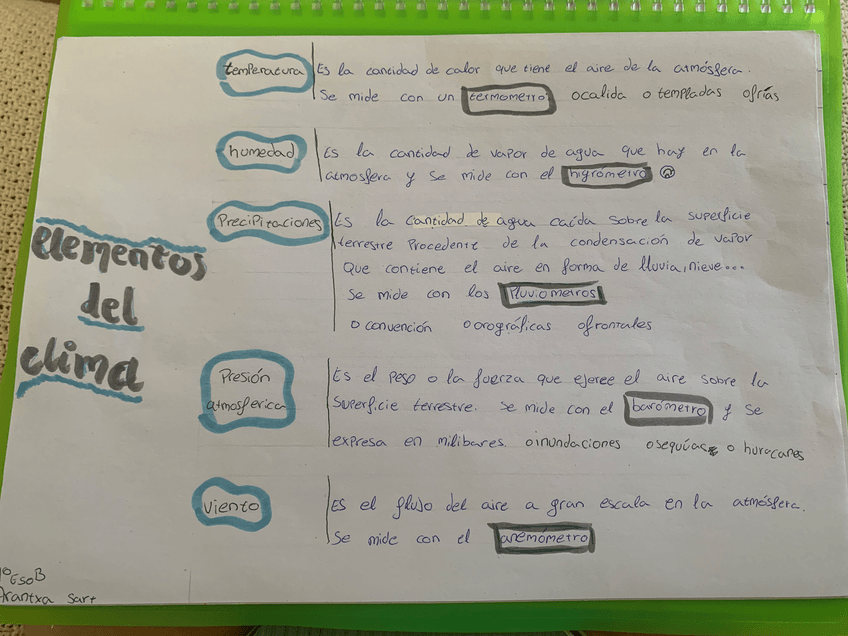 elementos
del
clima
temperatura
Es la cantidad de calor que tiene el aire de la atmósfera.
Se mide con un termometro o calida o templadas o frías
humedad
Es la cantidad de vapor de agua que hay en la
atmosfera y se mide con el higrómetro
Precipitaciones
Es la cantidad de agua caída sobre la superficie
terrestre Procedente de la condensación de vapor
Que contiene el aire en forma de lluvia, nieve...
Se mide con los Pluviometros
o convención o orográficas o frontales
Presión
atmosferica
Es el Peso o la fuerza que ejerce el aire sobre la
Superficie terrestre. Se mide con el barómetro y se
expresa en milibares. o inundaciones o sequías o huracanes
viento
Es el flujo del aire a gran escala en la atmósfera.
Se mide con el anemómetro
1º ESO B
Arantxa Sart